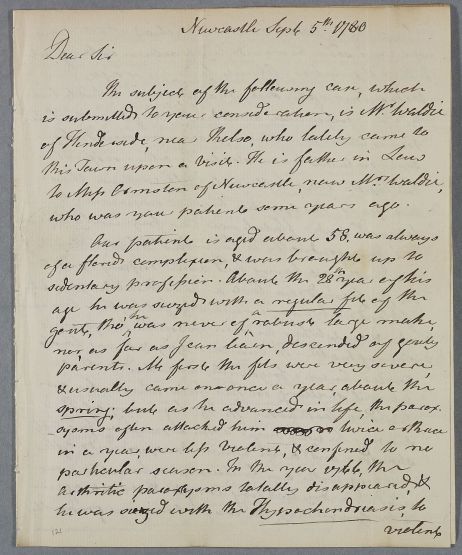 Newcastle Sept 5th 1780
Dear Sir
The subject of the following case, which
is submitted to your consideration, is Mr Waldie
of Henderside, near Kelso, who lately came to
this Town upon a visit. He is father in Law
to Miss Ormston of Newcastle now Mrs Waldie,
who was your patient some years ago.
Our patient is aged about 58, was always
of a florid complexion, & was brought up to
sedentary profession. About the 28th year of his
age he was seized with a regular fit of the
gout, tho' he was never of a robust large make,
nor, as far as I can learn, descended of gouty
parents. At first the fits were very severe,
& usually came on once a year, about the
spring; but as he advanced in life, the parox
ysms often attacked him twice or thrice
in a year, were less violent, & confined to no
particular season. In the year 1766, the
arthritic paroxysms totally disappeared, &
he was seized with the Hypochondriasis, to
violent
121